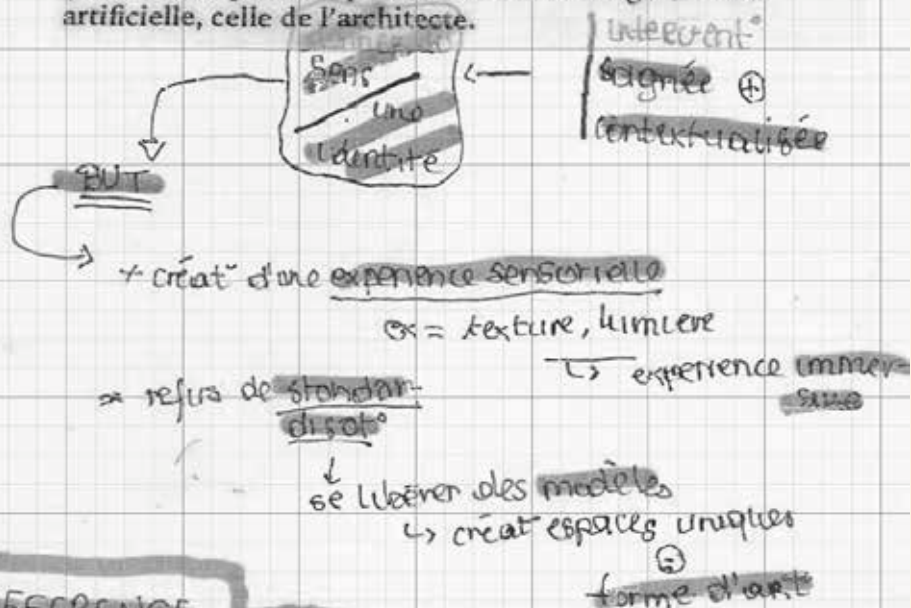 artificielle, celle de l'architecte.
Intervent°
Sens
soignée +
une
contextualisée
Identité
BUT
+ créat° d'une expérience sensorielle
ex = texture, lumière
↳ expérience immer-
sive
* refus de standar-
disat°
↓
se libérer des modèles
↳ créat espaces uniques
=
forme d'art